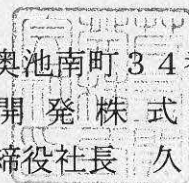 奥池南町34
開発株式
締役社長 久